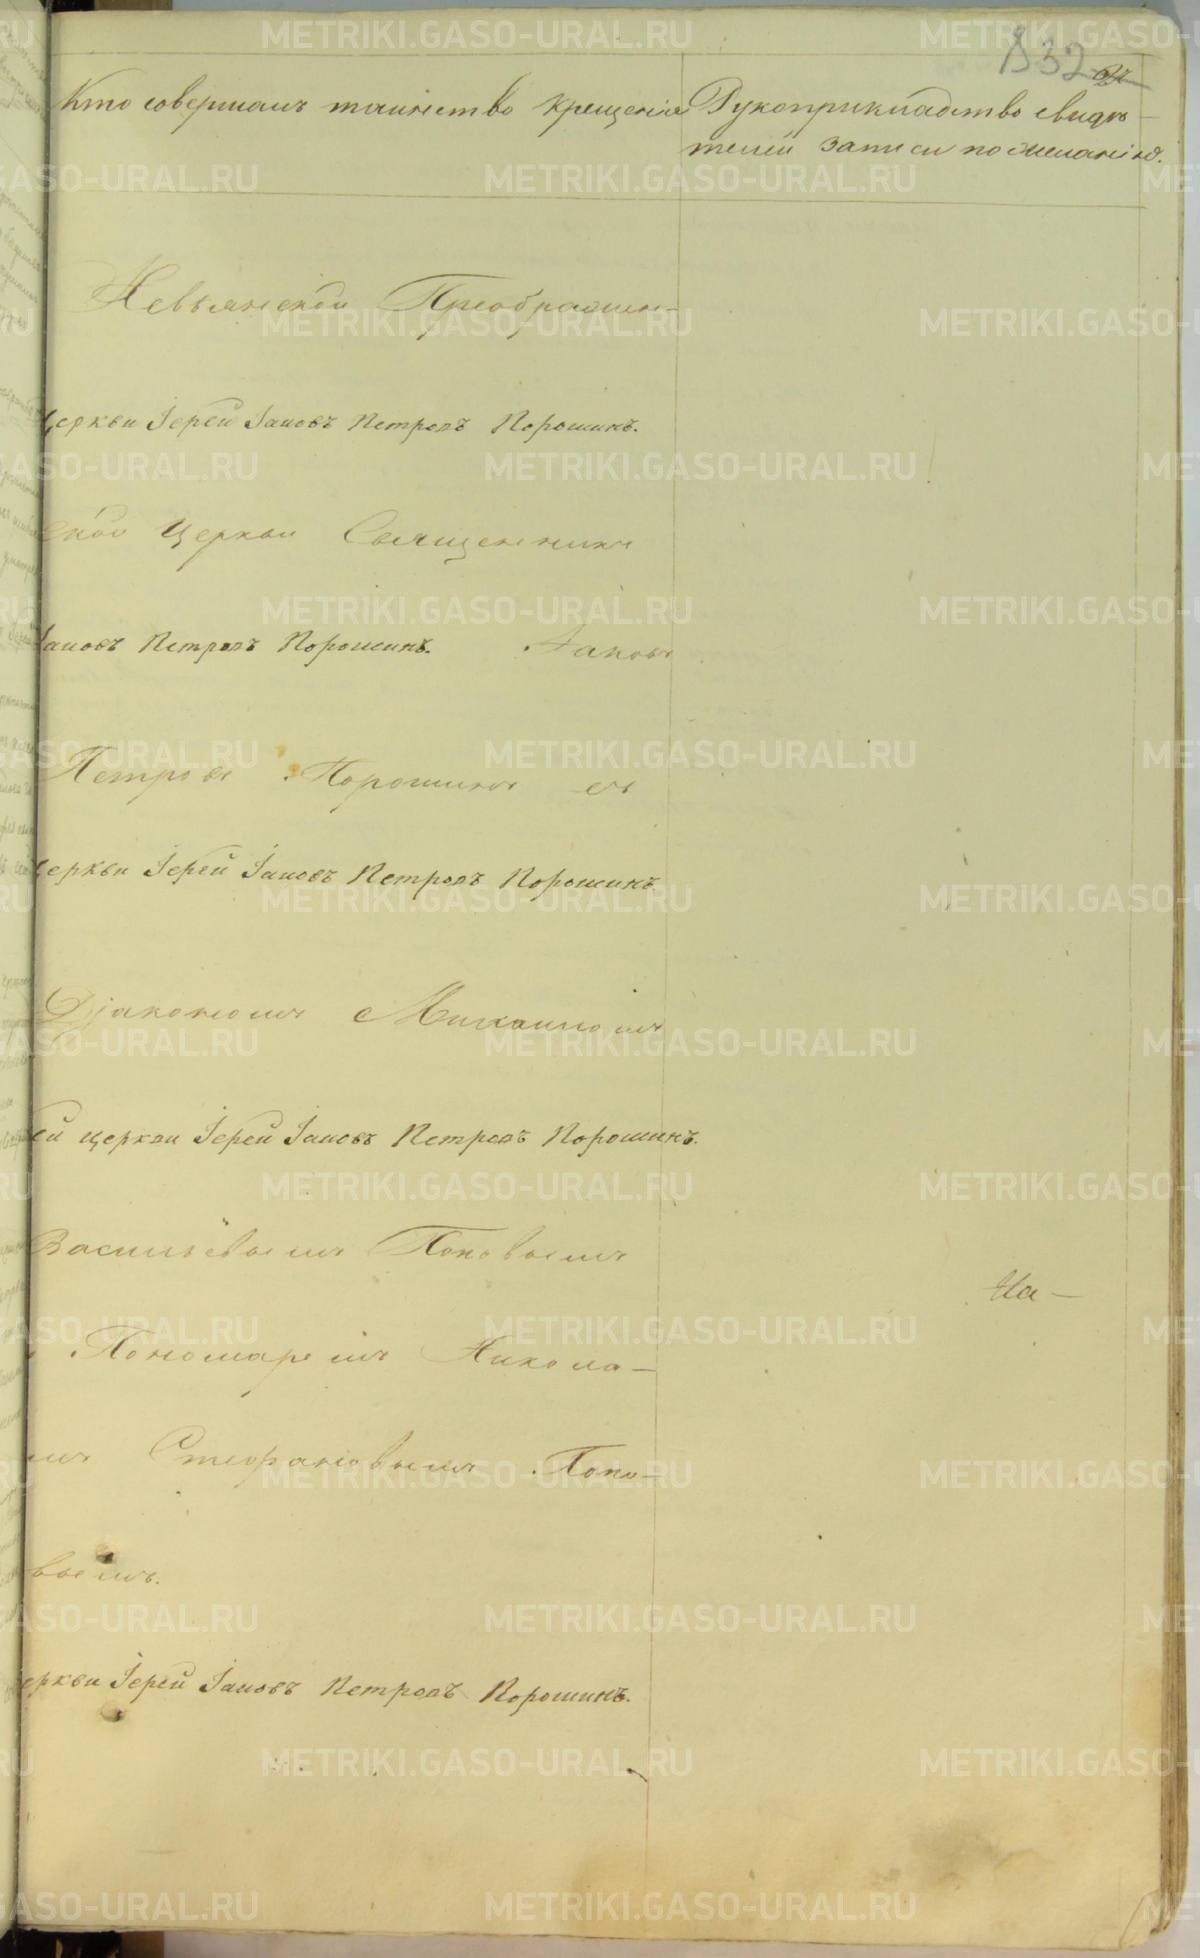 832
Кто совершалъ таинство крещенія
Рукоприкладство свидѣ-
телей записи по желанію.
Невьянской Преображен-
церкви Іерей Іаковъ Петровъ Порошинъ.
ской Церкви Священникъ
Іаковъ Петровъ Порошинъ. Іаковъ
Петровъ Порошинъ съ
церкви Іерей Іаковъ Петровъ Порошинъ
Діакономъ Михаиломъ
ей церкви Іерей Іаковъ Петровъ Порошинъ.
Васильевымъ Поповымъ
На-
Пономаремъ Никола-
мъ Стефановымъ Попо-
вымъ.
еркви Іерей Іаковъ Петровъ Порошинъ.
METRIKI.GASO-URAL.RU